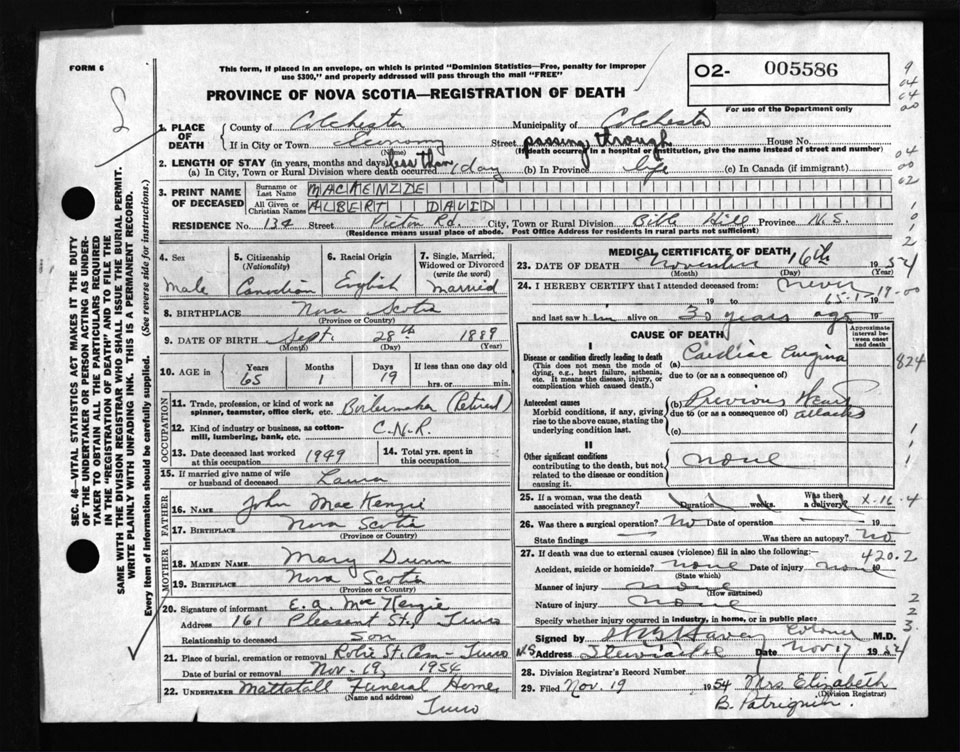 FORM 6
This form, if placed in an envelope, on which is printed "Dominion Statistics—Free, penalty for improper
use $300," and properly addressed will pass through the mail "FREE"
02- 005586
For use of the Department only
PROVINCE OF NOVA SCOTIA—REGISTRATION OF DEATH
1. PLACE OF DEATH
County of Colchester Municipality of Colchester
If in City or Town Economy Street passing through House No.
(Name) (If death occurred in a hospital or institution, give the name instead of street and number)
2. LENGTH OF STAY (in years, months and days)
(a) In City, Town or Rural Division where death occurred less than 1 day (b) In Province life (c) In Canada (if immigrant)
3. PRINT NAME OF DECEASED
Surname or Last Name MACKENZIE
All Given or Christian Names ALBERT DAVID
RESIDENCE No. 134 Street Victon Rd. City, Town or Rural Division Bible Hill Province N.S.
(Residence means usual place of abode. Post Office Address for residents in rural parts not sufficient)
4. Sex
Male
5. Citizenship (Nationality)
Canadian
6. Racial Origin
English
7. Single, Married, Widowed or Divorced (write the word)
Married
8. BIRTHPLACE Nova Scotia
(Province or Country)
9. DATE OF BIRTH Sept. 28th 1889
(Month) (Day) (Year)
10. AGE in Years 65 Months 1 Days 19 If less than one day
hrs. or min.
OCCUPATION
11. Trade, profession, or kind of work as
spinner, teamster, office clerk, etc. Boilermaker (Retired)
12. Kind of industry or business, as cotton-
mill, lumbering, bank, etc. C.N.R.
13. Date deceased last worked
at this occupation 1949
14. Total yrs. spent in
this occupation
15. If married give name of wife
or husband of deceased Laura
FATHER
16. NAME John MacKenzie
17. BIRTHPLACE Nova Scotia
(Province or Country)
MOTHER
18. MAIDEN NAME Mary Dunn
19. BIRTHPLACE Nova Scotia
(Province or Country)
20. Signature of informant E. A. MacKenzie
Address 161 Pleasant St., Truro
Relationship to deceased Son
21. Place of burial, cremation or removal Robie St. Cem- Truro
Date of burial or removal Nov-19, 1954
22. UNDERTAKER Mattatall Funeral Home,
(Name and address)
Truro
MEDICAL CERTIFICATE OF DEATH
23. DATE OF DEATH November 16th 1954
(Month) (Day) (Year)
24. I HEREBY CERTIFY that I attended deceased from: never
19 to 65-1-19-00 19
and last saw him alive on 30 years ago 19
CAUSE OF DEATH
Approximate interval between onset and death
I
Disease or condition directly leading to death
(This does not mean the mode of
dying, e.g., heart failure, asthenia,
etc. It means the disease, injury, or
complication which caused death.)
(a) Cardiac Angina
due to (or as a consequence of)
Antecedent causes
Morbid conditions, if any, giving
rise to the above cause, stating the
underlying condition last.
(b) Previous Heart attacks
due to (or as a consequence of)
(c)
II
Other significant conditions
contributing to the death, but not
related to the disease or condition
causing it.
none
25. If a woman, was the death
associated with pregnancy? Duration weeks. Was there a delivery X-16-4
26. Was there a surgical operation? No Date of operation 19
State findings Was there an autopsy? No
27. If death was due to external causes (violence) fill in also the following:— 420.2
Accident, suicide or homicide? none Date of injury none 19
(State which)
Manner of injury none
(How sustained)
Nature of injury none
Specify whether injury occurred in industry, in home, or in public place
Signed by Coroner M.D.
N.S. Address Stewiacke Date Nov 17 1954
28. Division Registrar's Record Number
29. Filed Nov. 19 1954 Mrs. Elizabeth
(Division Registrar)
B. Patriquin
SEC. 46—VITAL STATISTICS ACT MAKES IT THE DUTY
OF THE UNDERTAKER OR PERSON ACTING AS UNDER-
TAKER TO OBTAIN ALL THE PARTICULARS REQUIRED
IN THE "REGISTRATION OF DEATH" AND TO FILE THE
SAME WITH THE DIVISION REGISTRAR WHO SHALL ISSUE THE BURIAL PERMIT.
WRITE PLAINLY WITH UNFADING INK. THIS IS A PERMANENT RECORD.
Every item of information should be carefully supplied. (See reverse side for instructions.)
9
04
04
00
04
00
02
1
0
1
2
824
1
1
1
2
2
3